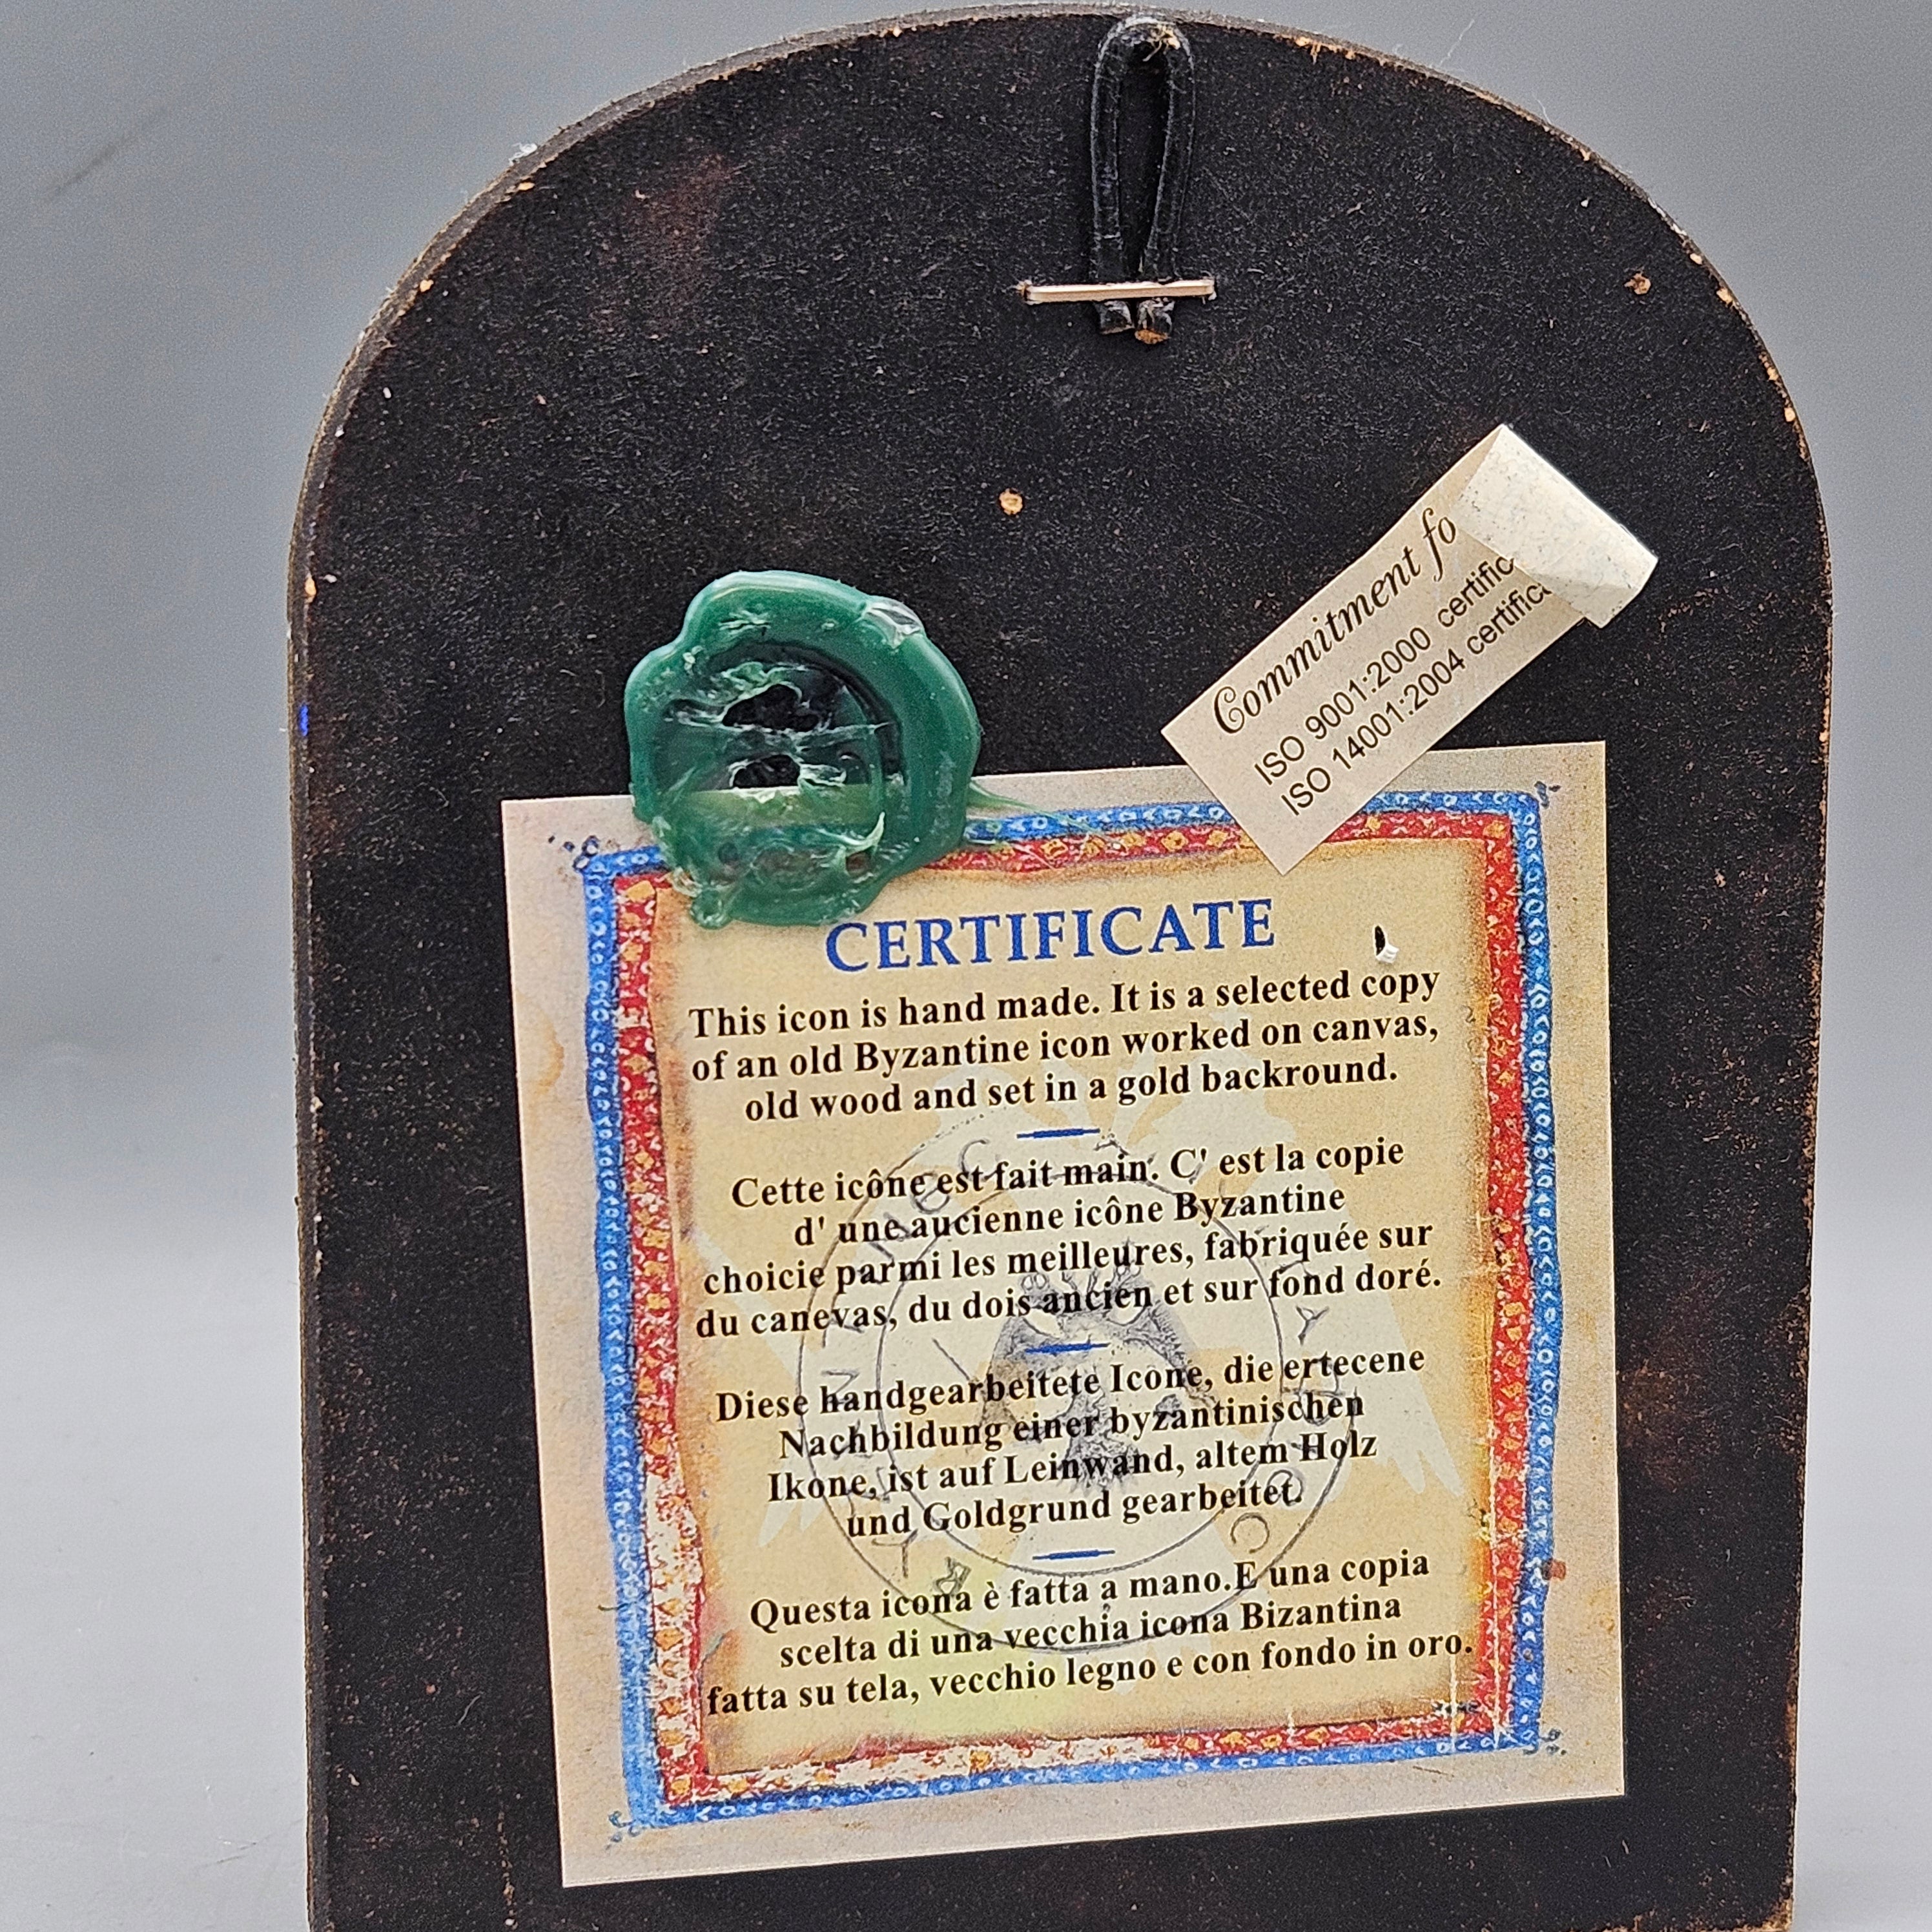 Commitment fo
ISO 9001:2000 certific
ISO 14001:2004 certific
CERTIFICATE
This icon is hand made. It is a selected copy
of an old Byzantine icon worked on canvas,
old wood and set in a gold backround.
Cette icône est fait main. C' est la copie
d' une aucienne icône Byzantine
choicie parmi les meilleures, fabriquée sur
du canevas, du dois ancien et sur fond doré.
Diese handgearbeitete Icone, die ertecene
Nachbildung einer byzantinischen
Ikone, ist auf Leinwand, altem Holz
und Goldgrund gearbeitet.
Questa icona è fatta a mano.E una copia
scelta di una vecchia icona Bizantina
fatta su tela, vecchio legno e con fondo in oro.